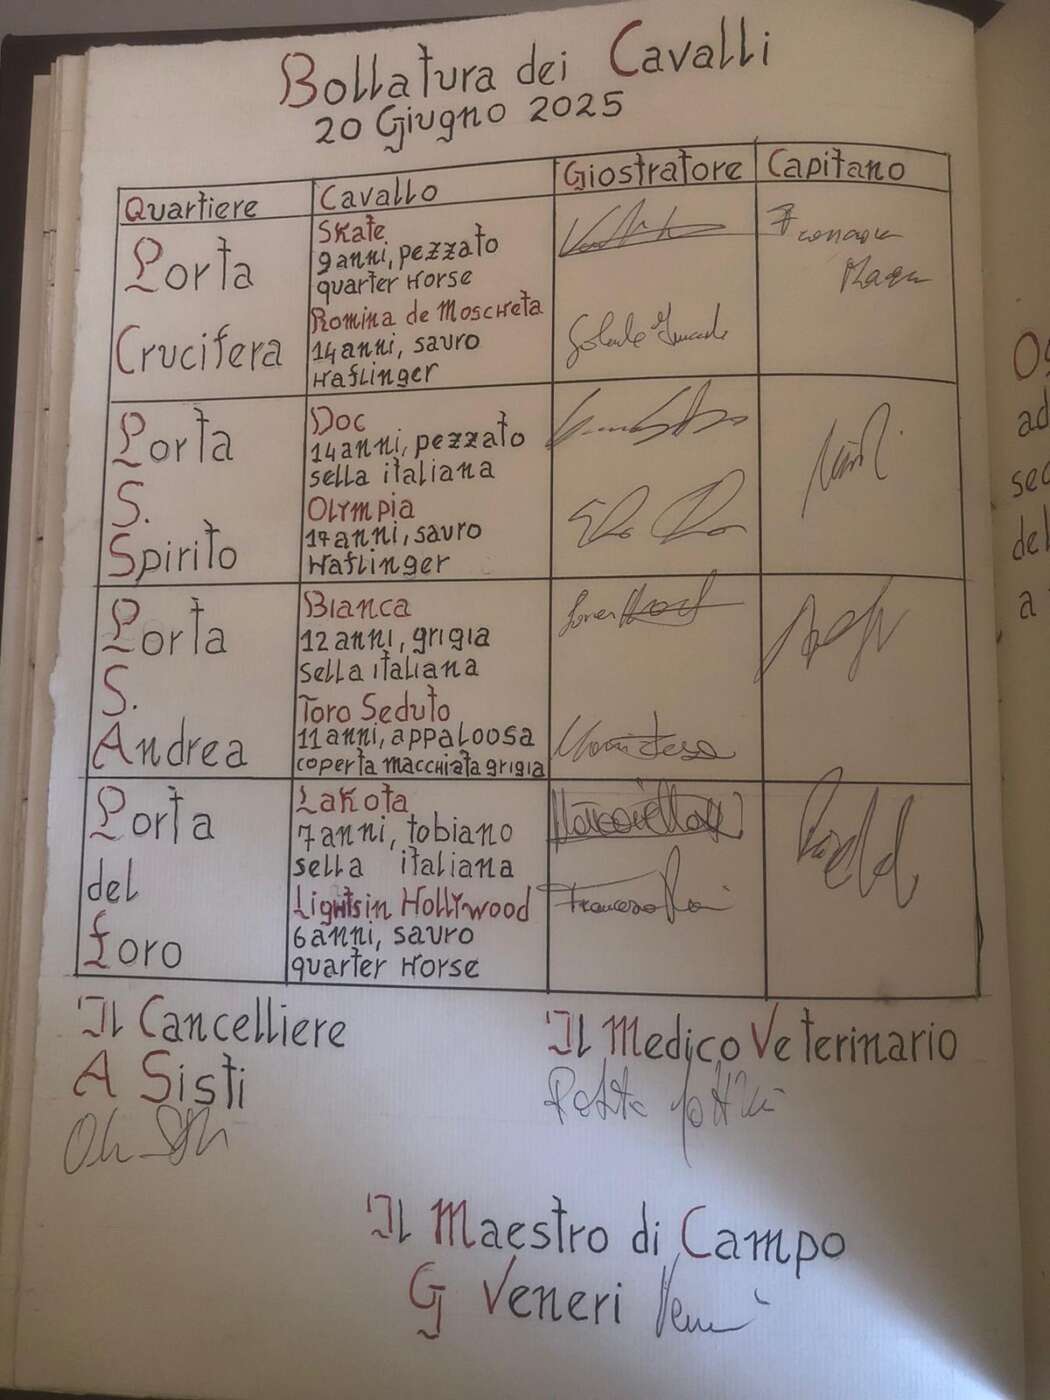 Bollatura dei Cavalli
20 Giugno 2025
Quartiere Cavallo Giostratore Capitano
Porta
Crucifera
Skate
9 anni, pezzato
quarter Horse
Romina de Moscheta
14 anni, sauro
Haflinger
Porta
S.
Spirito
Doc
14 anni, pezzato
sella italiana
Olympia
anni, sauro
Haflinger
Porta
S.
Andrea
Bianca
12 anni, grigia
sella italiana
Toro Seduto
11 anni, appaloosa
coperta macchiata grigia
Porta
del
Foro
Lakota
7 anni, tobiano
sella italiana
Lights in Hollywood
6 anni, sauro
quarter Horse
Francesco
Il Cancelliere
A Sisti
Il Medico Veterinario
Il Maestro di Campo
G Veneri